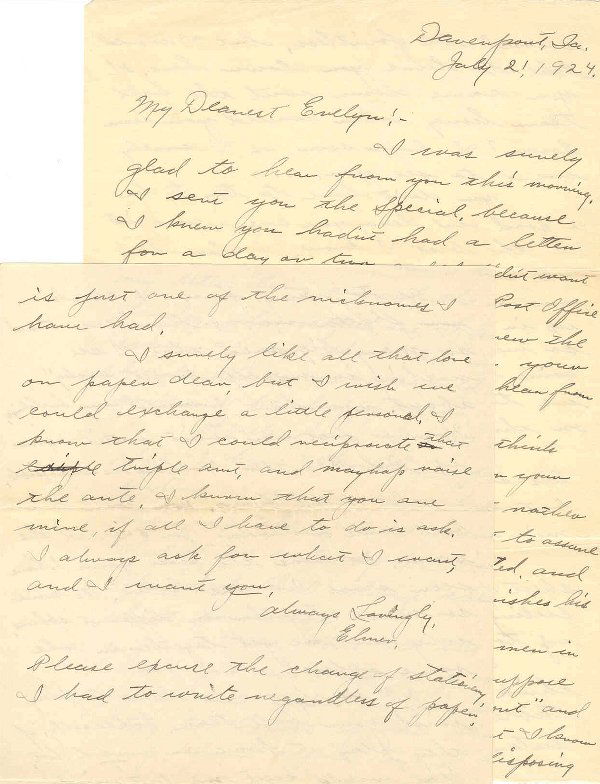 Davenport, Ia.
July 21, 1924.
My Dearest Evelyn! -
I was surely
glad to hear from you this morning.
I sent you the Special, because
I knew you hadn't had a letter
for a day or two
didn't want
Post Office
the
your
hear from
think
your
to assume
and
wishes his
men in
and
I know
disposing
is just one of the nicknames I
have had.
I surely like all that love
on paper dear, but I wish we
could exchange a little personal. I
know that I could reciprocate that
triple amt, and mayhap raise
the ante. I know that you are
mine, if all I have to do is ask.
I always ask for what I want,
and I want you.
Always Lovingly,
Elmer.
Please excuse the change of stationery,
I had to write regardless of paper.